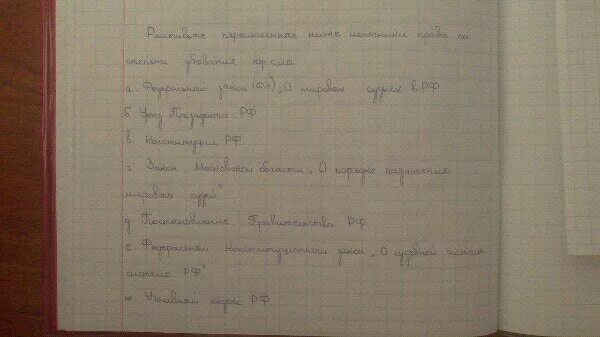 Расставьте перечисленные ниже источники права по
степени убывания юр. силы
а. Федеральный закон (ФЗ) „О мировых судьях в РФ
б. Указ Президента РФ
в. Конституция РФ
г. Закон Московской области „О порядке назначения
мировых судей"
д. Постановление Правительства РФ
е. Федеральный Конституционный закон „О судебной системе
системе РФ"
ж. Уголовный кодекс РФ